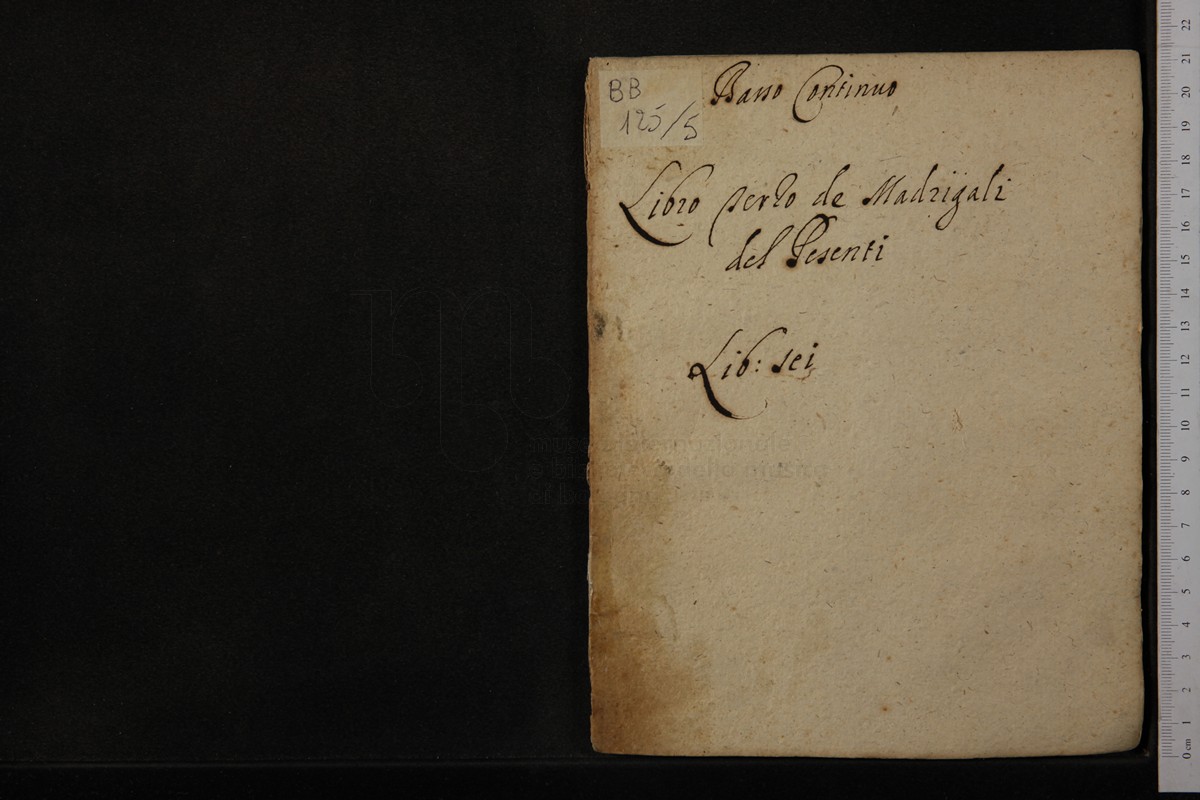 BB
125/5
Basso Continuo
Libro Terzo de Madrigali
del Pesenti
Lib: sei
museo internazionale
e biblioteca della musica
22
21
20
19
18
17
16
15
14
13
12
11
10
9
8
7
6
5
4
3
2
1
0 cm